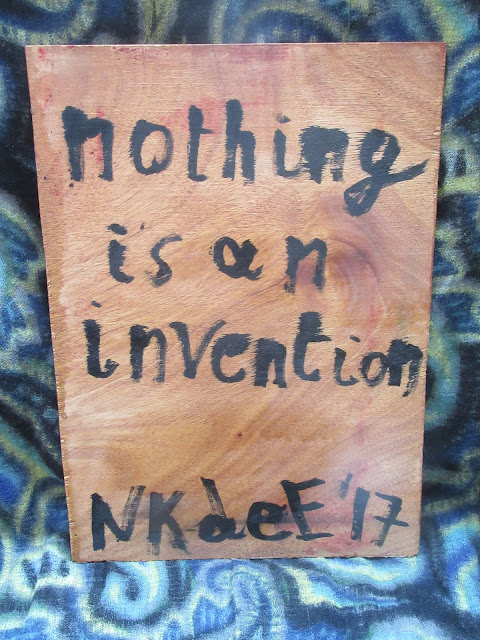 nothing
is an
invention
NKdeE '17